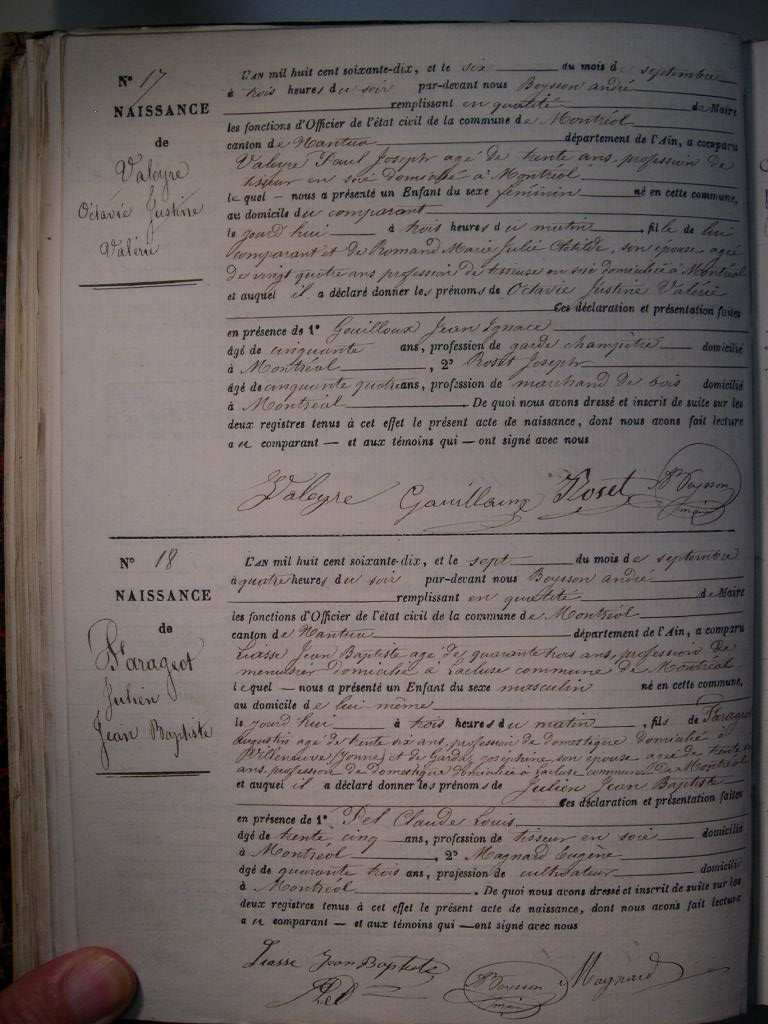 N° 17
NAISSANCE
de
Valeyre
Octavie Justine
Valérie
L'AN mil huit cent soixante-dix, et le six du mois de septembre
à trois heures du soir par-devant nous Boysson andré
remplissant en qualité de Maire
les fonctions d'Officier de l'état civil de la commune de Montréal
canton de Nantua département de l'Ain, a comparu
Valeyre Paul Joseph agé de trente ans, profession de
tisseur en soie domicilié à Montréal
lequel — nous a présenté un Enfant du sexe féminin né en cette commune,
au domicile du comparant
le jourd'hui à trois heures du matin, fille de lui
comparant et de Romand Marie Julie Clotilde, son épouse agée
de vingt quatre ans profession de tisseuse en soie domiciliée à Montréal
et auquel il a déclaré donner les prénoms de Octavie Justine Valérie
Ces déclaration et présentation faites
en présence de 1° Gouilloux Jean Ignace
âgé de cinquante ans, profession de garde champêtre domicilié
à Montréal, 2° Roset Joseph
âgé de cinquante quatre ans, profession de marchand de bois domicilié
à Montréal. De quoi nous avons dressé et inscrit de suite sur les
deux registres tenus à cet effet le présent acte de naissance, dont nous avons fait lecture
au comparant — et aux témoins qui — ont signé avec nous
Valeyre Roset Boysson
maire
N° 18
NAISSANCE
de
Parageot
Julien
Jean Baptiste
L'AN mil huit cent soixante-dix, et le sept du mois de septembre
à quatre heures du soir par-devant nous Boysson andré
remplissant en qualité de Maire
les fonctions d'Officier de l'état civil de la commune de Montréal
canton de Nantua département de l'Ain, a comparu
Liasse Jean Baptiste agé de quarante trois ans, profession de
menuisier domicilié à Lacluse commune de Montréal
lequel — nous a présenté un Enfant du sexe masculin né en cette commune,
au domicile de lui même
le jourd'hui à trois heures du matin, fils de Parageot
Augustin agé de trente six ans, profession de domestique domicilié à
Villeneuve (Yonne) et de Garda Joséphine, son épouse agée de trente
ans, profession de domestique domiciliée à Lacluse commune de Montréal
et auquel il a déclaré donner les prénoms de Julien Jean Baptiste
Ces déclaration et présentation faites
en présence de 1° Pel Claude Louis
âgé de trente cinq ans, profession de tisseur en soie domicilié
à Montréal, 2° Magnard Eugène
âgé de quarante trois ans, profession de cultivateur domicilié
à Montréal. De quoi nous avons dressé et inscrit de suite sur les
deux registres tenus à cet effet le présent acte de naissance, dont nous avons fait lecture
au comparant — et aux témoins qui — ont signé avec nous
Liasse Jean Baptiste Boysson Magnard
Pel maire